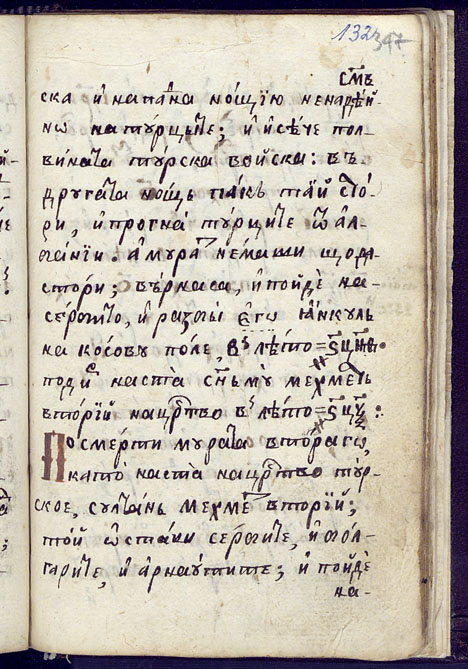 132 347
смъ
ска и напана нощїю ненадѣй-
нѡ натꙋрцыте; и исѣче пол-
вината тꙋрска войска: въ
дрꙋгата нощь пакъ тай сто-
ри, и прогна тꙋрците ѿ ал-
банїи. амꙋра немаши щода
стори; вѣрнаса, и пойде на-
сербито, и разби его ꙗнкꙋль
на косовꙋ поле, въ лѣто
поди настапа смъ мꙋ мехметь
вторїй нацртво въ лѣто
Посмерти мꙋрата втораго,
като настапа нацртво тꙋр-
ское, сꙋлтань мехме вторїй;
той ѡстави сербите, и бол-
гарите, и арнаꙋтите; и пойде
на-